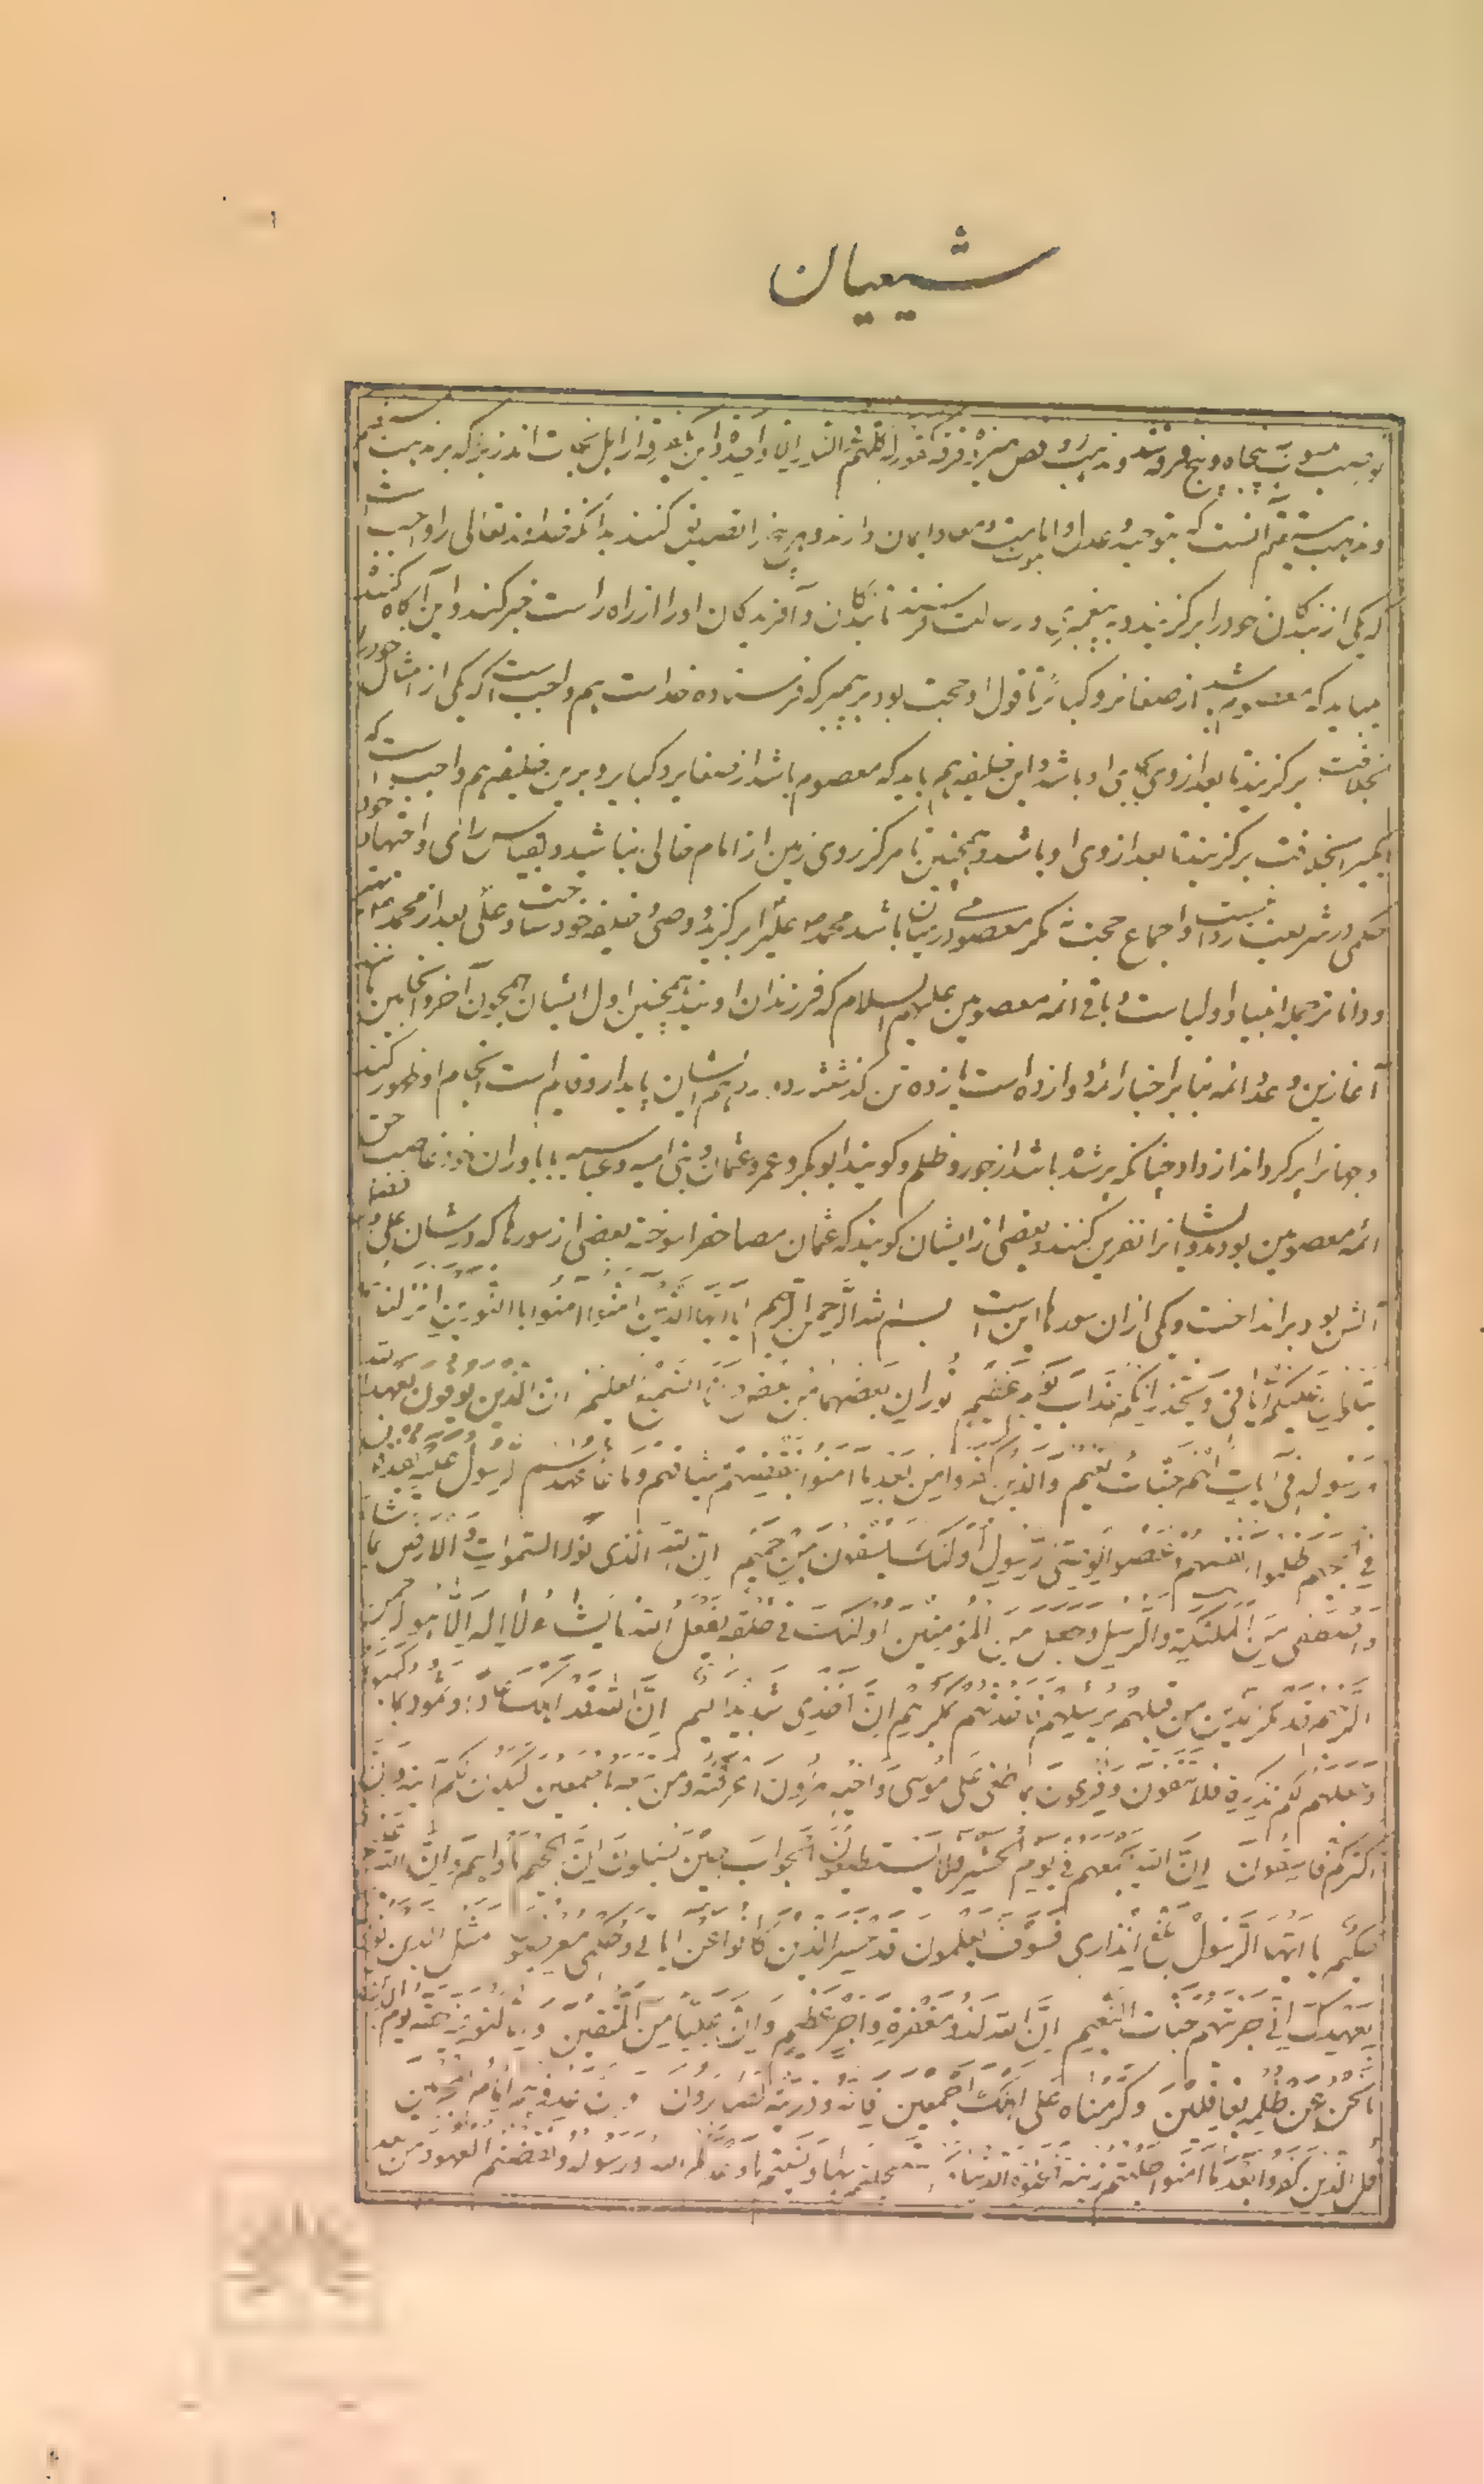 شیعیان
و مذهب مستقیم آنست که بتوحید و عدل و نبوت و امامت و معاد ایمان دارند و هر پنج را تصدیق کنند بدانکه خداوند تعالی را واجب است
که یکی از بندگان خود را برگزیند و به پیغمبری و رسالت فرستد تا بندگان و آفریدگان او را از راه راست خبر کند و این آگاه کننده
میباید که معصوم باشد از صغایر و کبایر تا قول او حجت بود بر پیمبر که فرستاده خداست هم واجب است که یکی از امثال خود را
بخلافت برگزیند تا بعد از وی بجای او باشد و این خلیفه هم باید که معصوم باشد از صغایر و کبایر و برین خلیفه هم واجب است که
بخلافت برگزیند تا بعد از وی او باشد و همچنین تا هرگز روی زمین از امام خالی نباشد و بقیاس و رای و اجتهاد خود
حکمی در شریعت روا نیست و اجماع حجت مگر معصومی در میان باشد محمد علی را برگزید و وصی و خلیفه خود ساخت و علی بعد از محمد
و داناتر جمله انبیا و اولیاست و باقی ائمه معصومین علیهم السلام که فرزندان اویند همچنین اول ایشان همچون آخر و انجامین
آغازین و عدد ائمه بنابر اخبار ائمه دوازده است یازده تن گذشتند و دوازدهم ایشان پایدار و قایم است انجام او ظهور کند
و جهانرا پر گرداند از داد چنانکه پر شده باشد از جور و ظلم و گویند ابوبکر و عمر و عثمان و بنی امیه و عباسیه با یاوران خود غاصب حق
ائمه معصومین بودند و ایشانرا نفرین کنند و بعضی از ایشان گویند که عثمان مصاحف را سوخته بعضی از سورها که در شان علی و فضل
آلش بود برانداخت و یکی از آن سورها این است بسم الله الرحمن الرحیم یا ایها الذین امنوا امنوا بالنورین انزلناهما
یتلوان علیکم ایاتی و یحذرانکم عذاب یوم عظیم نوران بعضهما من بعض و انا السمیع العلیم ان الذین یوفون بعهد الله
و رسوله فی آیات لهم جنات نعیم و الذین کفروا من بعد ما آمنوا بنقضهم میثاقهم و ما عاهدهم الرسول علیه یقذفون
فی الجحیم ظلموا انفسهم و عصوا الوصی الرسول اولئک یسقون من حمیم ان الله الذی نور السموات و الارض بما شاء
و اصطفی من الملئکة و الرسل و جعل من المؤمنین اولئک فی خلقه یفعل الله ما یشاء لا اله الا هو الرحمن الرحیم
قد مکر الذین من قبلهم برسلهم فاخذتهم بمکرهم ان اخذی شدید الیم ان الله قد اهلک عادا و ثمود بما کسبوا
و جعلهم لکم تذکرة فلا تتقون و فرعون بما طغی علی موسی و اخیه هرون اغرقته و من تبعه اجمعین لیکون لکم آیة و ان
اکثرکم فاسقون ان الله یجمعهم فی یوم الحشر فلا یستطیعون الجواب حین یسئلون ان الجحیم ماویهم و ان الله علیم
حکیم یا ایها الرسول بلغ انذاری فسوف یعلمون قد خسر الذین کانوا عن ایاتی و حکمی معرضون مثل الذین یوفون
بعهدک انی جزیتهم جنات النعیم ان الله لذو مغفرة و اجر عظیم و ان علیا من المتقین و انا لنوفیه حقه یوم الدین
ما نحن عن ظلمه بغافلین و کرمناه علی اهلک اجمعین فانه و ذریته لصابرون و ان عدوهم امام المجرمین
قل للذین کفروا بعد ما امنوا طلبتم زینة الحیوة الدنیا و استعجلتم بها و نسیتم ما وعدکم الله و رسوله و نقضتم العهود من بعد